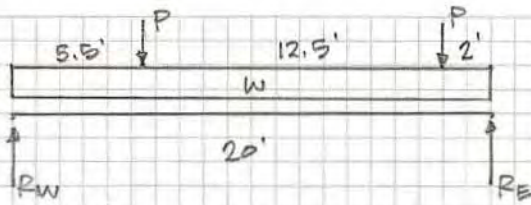 P P
5.5' 12.5' 2'
W
20'
RW RE